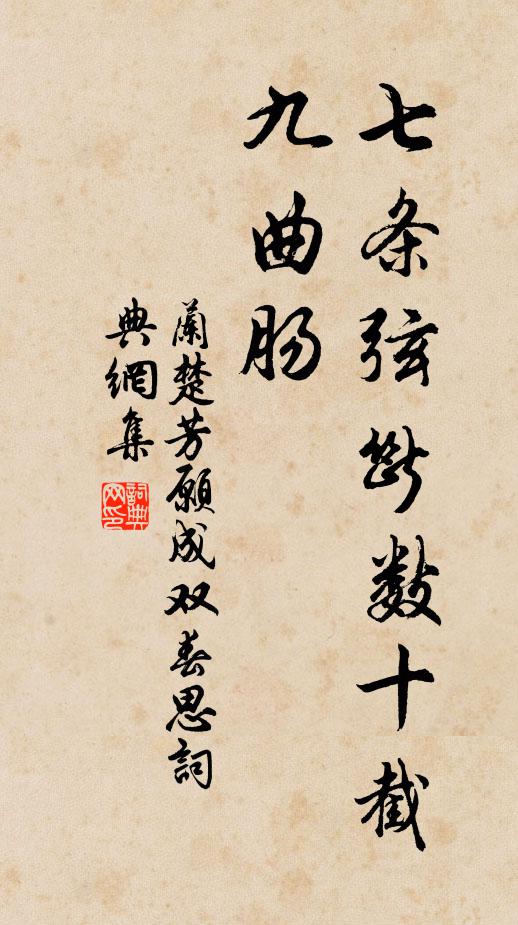 七条弦断数十截
九曲肠
蘭楚芳願成双春思詞
典網集
詞典网印